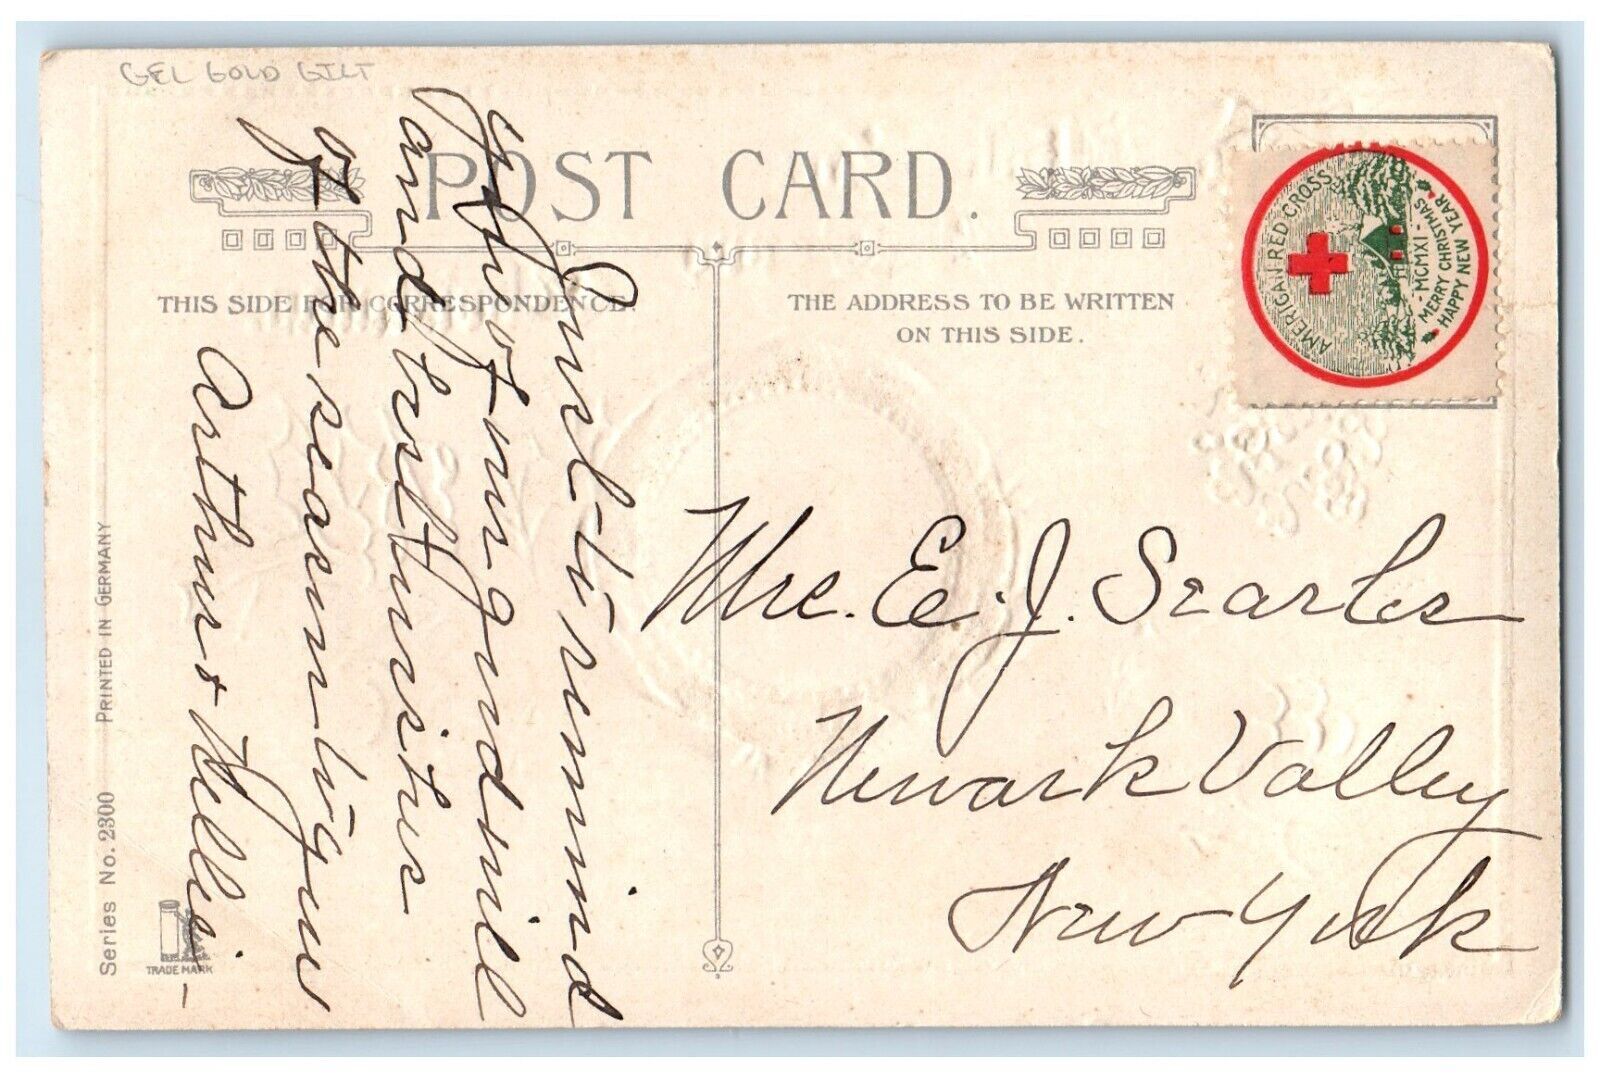 GEL GOLD GILT
POST CARD.
THIS SIDE FOR CORRESPONDENCE.
THE ADDRESS TO BE WRITTEN
ON THIS SIDE.
AMERICAN RED CROSS
MCMXI
MERRY CHRISTMAS
HAPPY NEW YEAR
Just to remind
you of our good will
and best wishes
of the season to you
Arthur & Nellie-
Mrs. E. J. Searles
Newark Valley
New York
Series No. 2300 PRINTED IN GERMANY
TRADE MARK